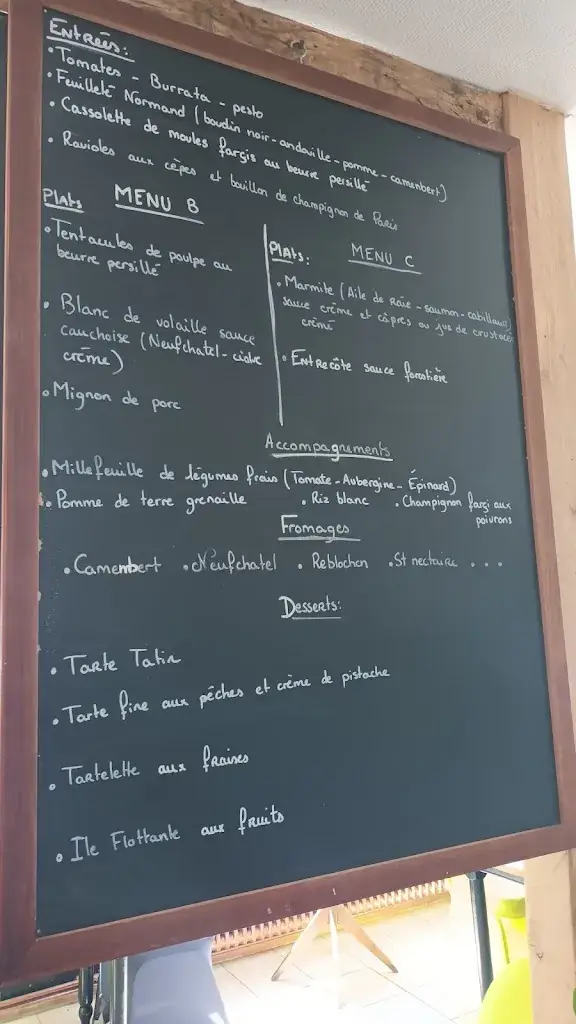 Entrées:
• Tomates - Burrata - pesto
• Feuilleté Normand (boudin noir - andouille - pomme - camembert)
• Cassolette de moules fargis au beurre persillé
• Ravioles aux cèpes et bouillon de champignon de Paris
Plats MENU B
• Tentacules de poulpe au
beurre persillé
• Blanc de volaille sauce
cauchoise (Neufchatel - cidre
crème)
• Mignon de porc
Plats: MENU C
• Marmite (Aile de Raie - saumon - cabillaud)
sauce crème et câpres ou jus de crustacé
crème
• Entrecôte sauce forestière
Accompagnements
• Millefeuille de légumes frais (Tomate - Aubergine - Épinard)
• Pomme de terre grenaille • Riz blanc • Champignon fargi aux
poivrons
Fromages
• Camembert • Neufchatel • Reblochon • St nectaire . . .
Desserts:
• Tarte Tatin
• Tarte fine aux pêches et crème de pistache
• Tartelette aux fraises
• Ile Flottante aux fruits